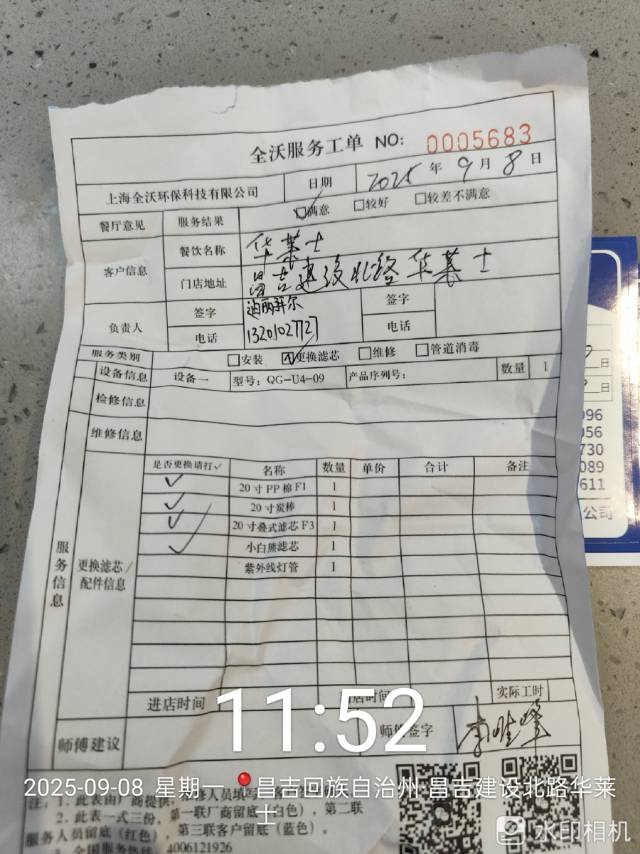 全沃服务工单 NO: 0005683
上海全沃环保科技有限公司 日期 2025 年 9 月 8 日
餐厅意见 服务结果 ☑满意 □较好 □较差不满意
客户信息 餐饮名称 华莱士
门店地址 昌吉建设北路华莱士
负责人 签字 签字
电话 电话
服务类别 □安装 ☑更换滤芯 □维修 □管道消毒
设备信息 设备一 型号：QG-U4-09 产品序列号： 数量 1
检修信息
维修信息
服务信息
更换滤芯/配件信息
是否更换请打✓ 名称 数量 单价 合计 备注
✓ 20寸PP棉F1 1
✓ 20寸炭棒 1
✓ 20寸叠式滤芯F3 1
✓ 小白熊滤芯 1
紫外线灯管 1
进店时间 实际工时
11:52
师傅建议 签字
2025-09-08 星期一 昌吉回族自治州·昌吉建设北路华莱士
注：1.此表由厂商提供，
2.此表一式三份，第一联厂商留底（白色），第二联
服务人员留底（红色），第三联客户留底（蓝色）。
3.全国服务热线：4006121926
水印相机
996
056
730
089
611
公司
日
日